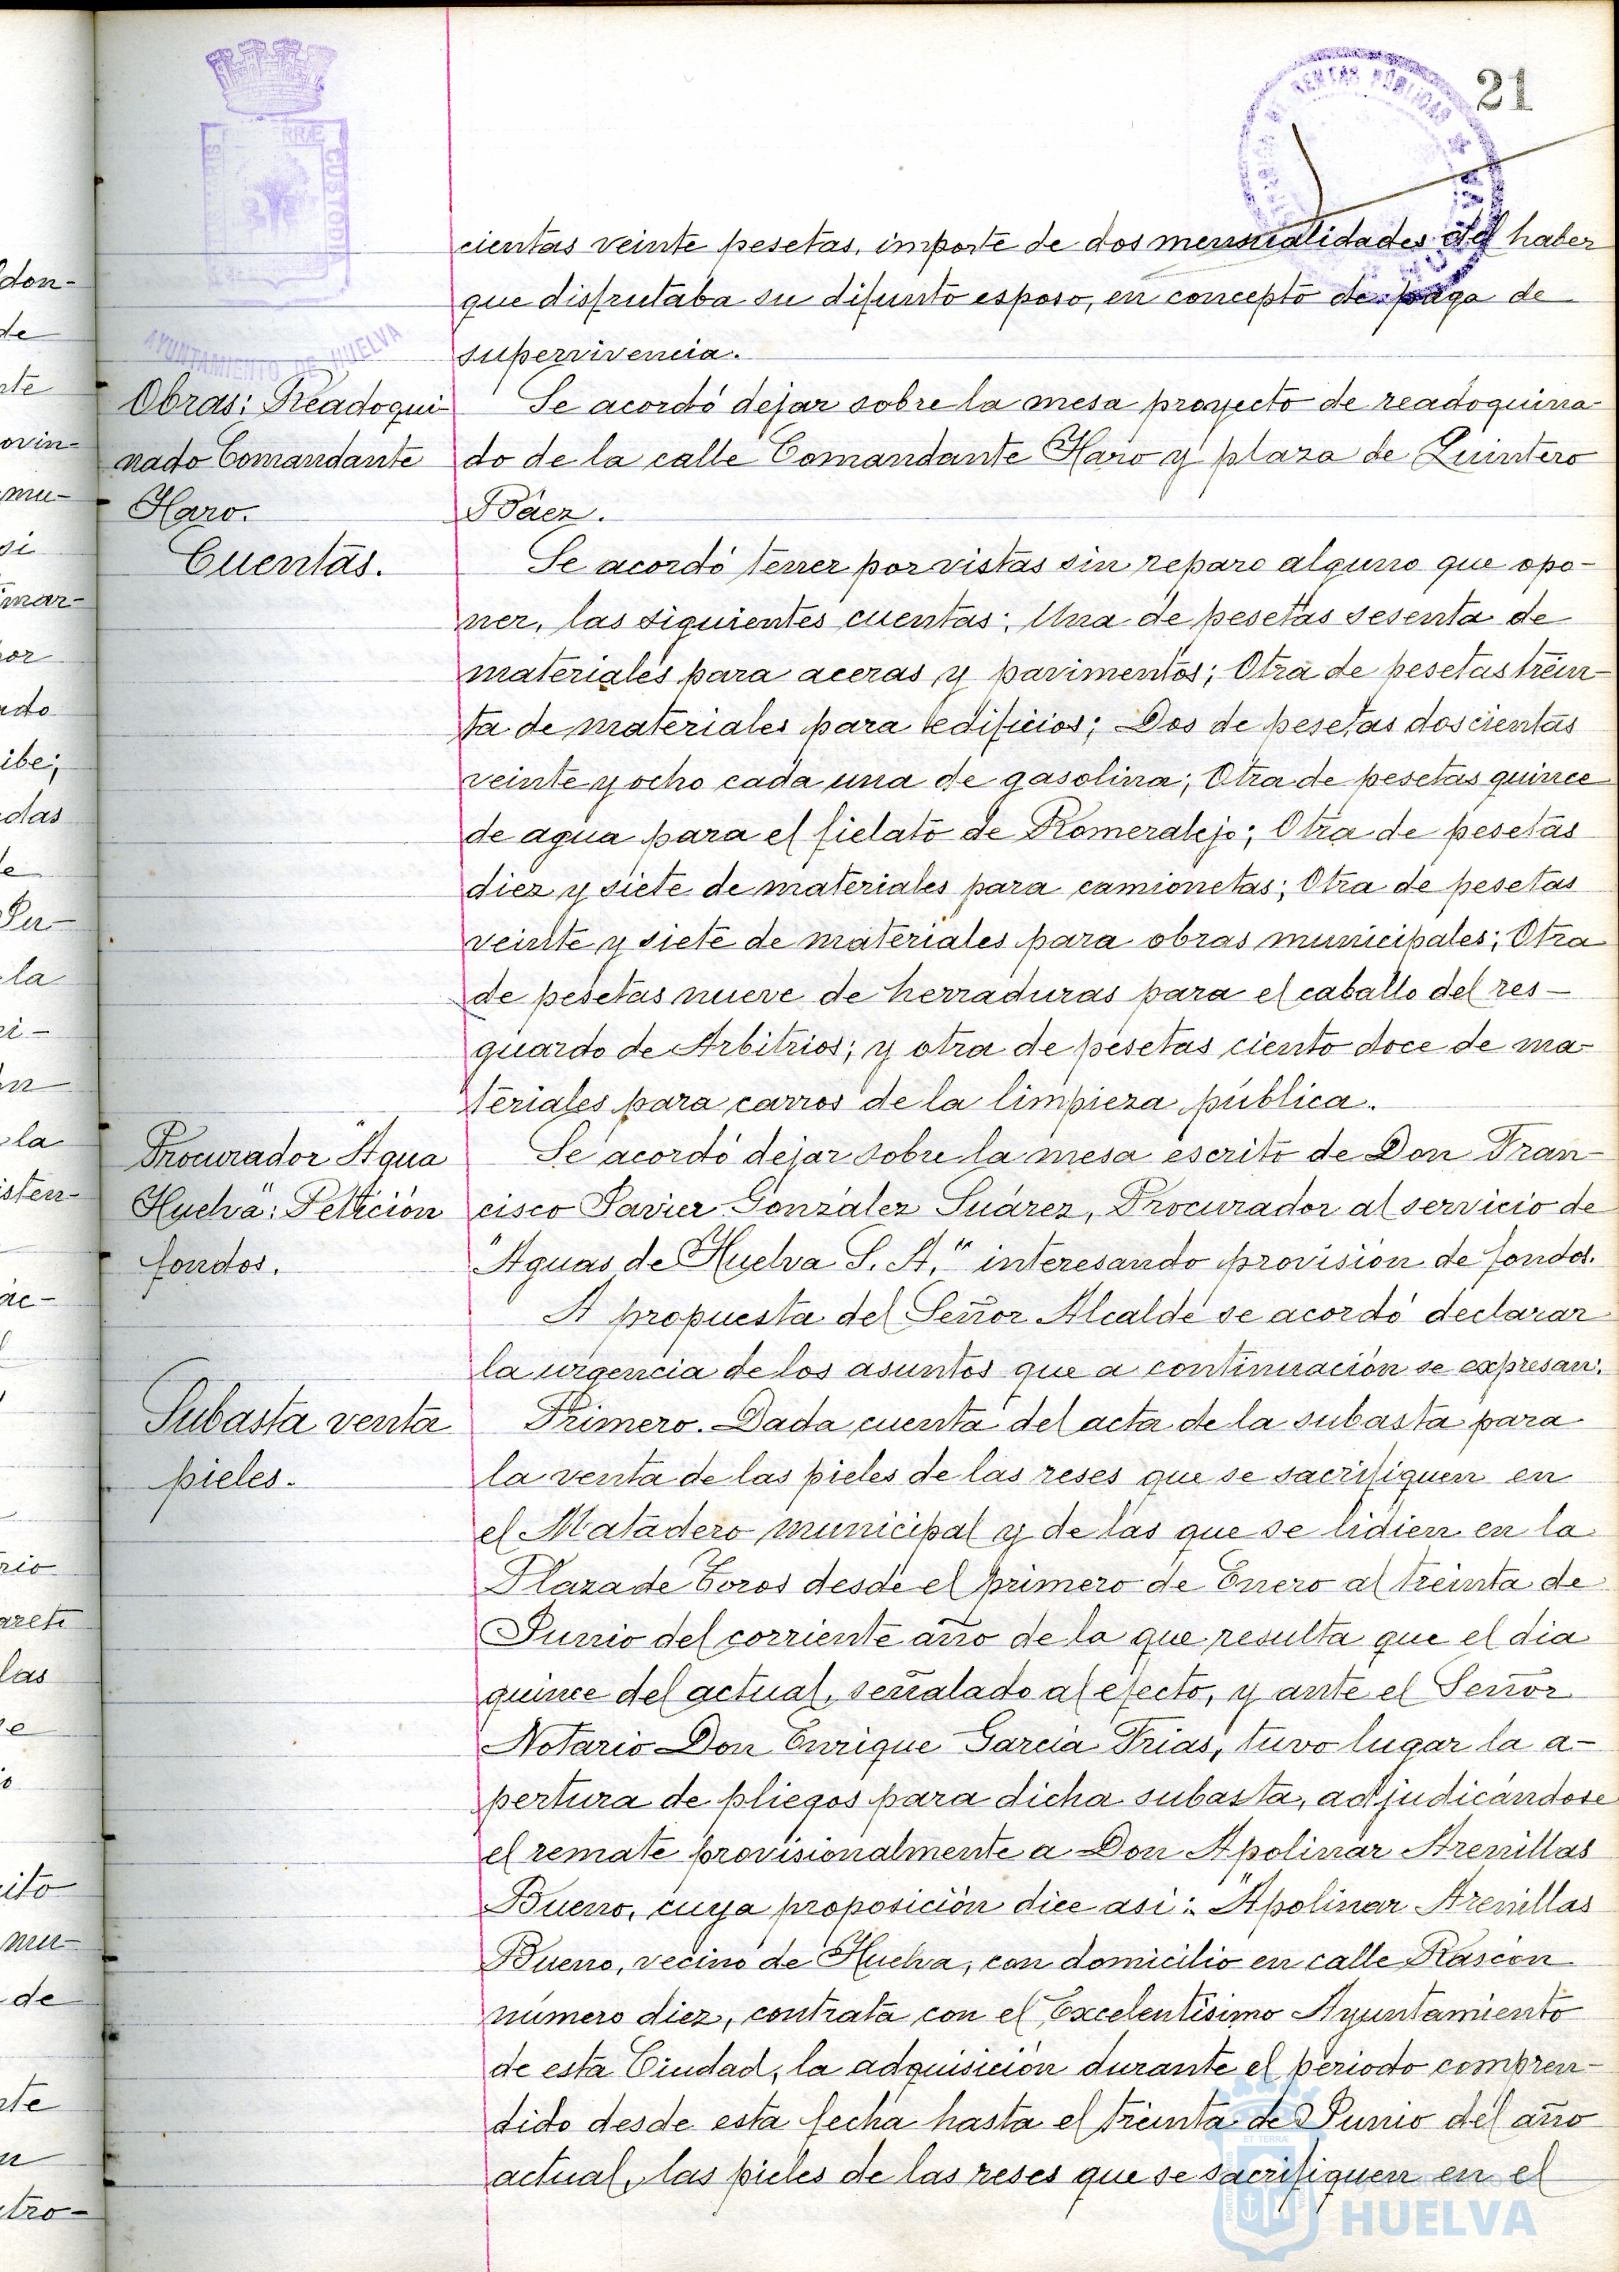 21
cientas veinte pesetas, importe de dos mensualidades del haber
que disfrutaba su difunto esposo, en concepto de paga de
supervivencia.
AYUNTAMIENTO DE HUELVA
Obras: Readoqui-
nado Comandante
Haro.
Se acordó dejar sobre la mesa proyecto de readoquina-
do de la calle Comandante Haro y plaza de Quintero
Báez.
Cuentas.
Se acordó tener por vistas sin reparo alguno que opo-
ner, las siguientes cuentas: Una de pesetas sesenta de
materiales para aceras y pavimentos; Otra de pesetas trein-
ta de materiales para edificios; Dos de pesetas doscientas
veinte y ocho cada una de gasolina; Otra de pesetas quince
de agua para el fielato de Romeralejo; Otra de pesetas
diez y siete de materiales para camionetas; Otra de pesetas
veinte y siete de materiales para obras municipales; Otra
de pesetas nueve de herraduras para el caballo del res-
guardo de Arbitrios; y otra de pesetas ciento doce de ma-
teriales para carros de la limpieza pública.
Procurador "Agua
Huelva": Petición
fondos.
Se acordó dejar sobre la mesa escrito de Don Fran-
cisco Javier González Suárez, Procurador al servicio de
"Aguas de Huelva S. A." interesando provisión de fondos.
A propuesta del Señor Alcalde se acordó declarar
la urgencia de los asuntos que a continuación se expresan:
Subasta venta
pieles.
Primero. Dada cuenta del acta de la subasta para
la venta de las pieles de las reses que se sacrifiquen en
el Matadero municipal y de las que se lidien en la
Plaza de Toros desde el primero de Enero al treinta de
Junio del corriente año de la que resulta que el dia
quince del actual, señalado al efecto, y ante el Señor
Notario Don Enrique García Frias, tuvo lugar la a-
pertura de pliegos para dicha subasta, adjudicándose
el remate provisionalmente a Don Apolinar Arenillas
Bueno, cuya proposición dice asi: "Apolinar Arenillas
Bueno, vecino de Huelva, con domicilio en calle Rascón
número diez, contrata con el Excelentísimo Ayuntamiento
de esta Ciudad, la adquisición durante el periodo compren-
dido desde esta fecha hasta el treinta de Junio del año
actual, las pieles de las reses que se sacrifiquen en el
HUELVA